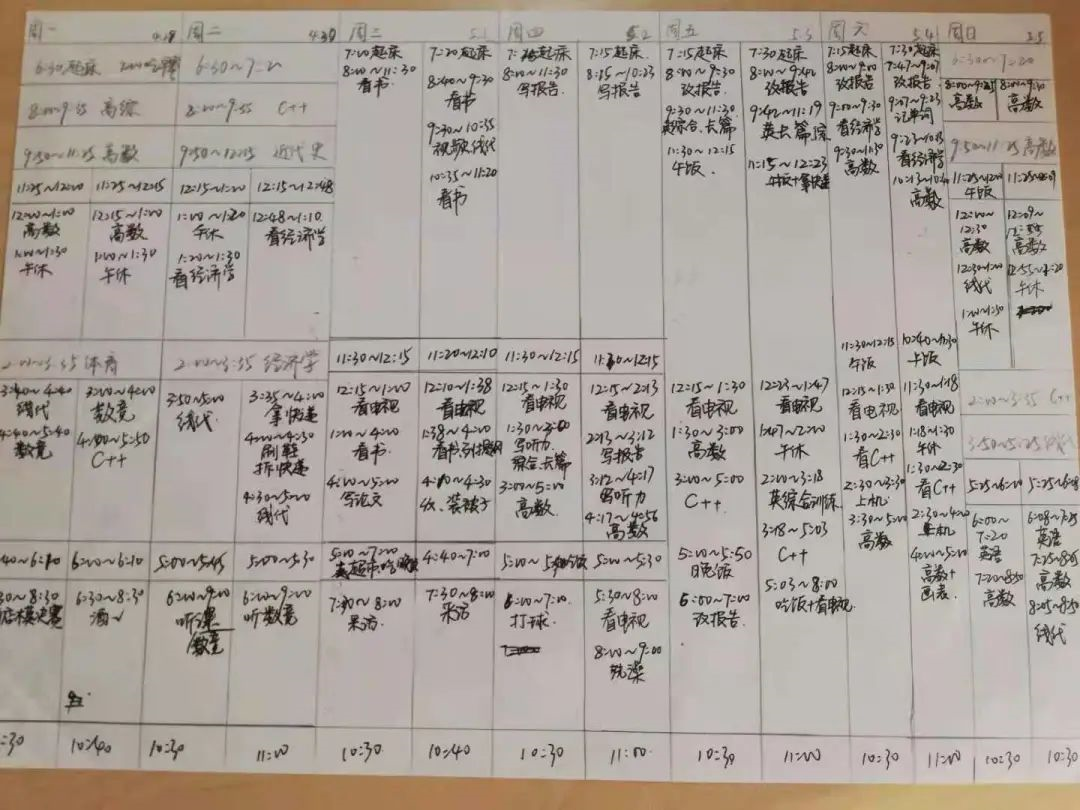 周一 4.29 周二 4.30 周三 5.1 周四 5.2 周五 5.3 周六 5.4 周日 5.5
6:30起床
8:00~9:35 高综
9:50~11:25 高数
11:25~12:00
12:00~1:00
高数
1:00~1:30
午休
11:25~12:15
12:15~1:00
高数
1:00~1:30
午休
2:00~3:35 体育
3:40~4:40
线代
4:40~5:40
数竞
3:40~4:40
数竞
4:40~5:50
C++
40~6:10
30~8:30
模决赛
:30
6:00~6:10
6:30~8:30
10:40
6:30~7:20
8:00~9:35 C++
9:50~12:15 近代史
12:15~1:00
1:00~1:20
午休
1:20~1:30
看经济学
12:15~12:48
12:48~1:10
看经济学
2:00~3:35 经济学
3:50~5:00
线代
3:35~4:00
拿快递
4:00~4:30
刷鞋
拆快递
4:30~5:00
线代
5:00~5:45
6:00~9:00
听课
数竞
10:30
5:00~5:30
6:00~9:00
听数竞
11:00
7:00起床
8:00~11:30
看书
11:30~12:15
12:15~1:00
看电视
1:00~4:00
看书
4:00~5:00
写论文
5:00~7:00
7:00~8:00
10:30
7:20起床
8:40~9:30
看书
9:30~10:35
视频线代
10:35~11:20
看书
11:20~12:10
12:10~1:38
看电视
1:38~4:00
看书
4:00~4:30
收、装被子
4:40~7:00
7:30~8:00
10:40
起床
8:00~11:30
写报告
11:30~12:15
12:15~1:30
看电视
1:30~3:00
写听力
综合、长篇
3:00~5:00
高数
6:00~7:00
打球
10:30
7:15起床
8:15~10:23
写报告
11:30~12:15
12:15~2:13
看电视
2:13~3:12
写报告
3:12~4:17
写听力
4:17~4:56
高数
5:00~5:30
5:30~8:00
看电视
8:00~9:00
洗澡
11:00
7:15起床
8:00~9:30
改报告
9:30~11:30
英综合、长篇
11:30~12:15
午饭
12:15~1:30
看电视
1:30~3:00
高数
3:00~5:00
C++
5:00~5:50
晚饭
6:00~7:00
改报告
10:30
7:30起床
8:00~9:42
改报告
9:42~11:19
英长篇
11:15~12:23
午饭+拿快递
12:23~1:47
看电视
1:47~2:00
午休
2:00~3:18
英综合训练
3:18~5:03
C++
5:03~8:00
吃饭+看电视
11:00
7:15起床
8:00~9:00
改报告
9:00~9:30
看经济学
9:30~11:30
高数
11:30~12:15
午饭
12:15~1:30
看电视
1:30~2:30
看C++
2:30~3:30
上机
3:30~5:00
高数
10:30
7:30起床
7:47~9:07
改报告
9:07~9:23
记单词
9:23~10:13
看经济学
高数
午饭
11:30~1:18
看电视
1:18~1:30
午休
1:30~2:30
看C++
2:30~4:00
上机
4:00~5:00
高数+
画表
11:00
6:30~7:20
高数
高数
9:50~11:25 高数
11:25~12:00
午饭
12:00~
12:30
高数
12:30~1:00
线代
1:00~1:30
午休
12:09~
12:55
高数
12:55~1:20
午休
2:00~3:35 C++
3:50~5:25 线代
5:25~6:00
6:00~
7:20
英语
7:20~8:50
高数
10:30
5:25~6:08
6:08~7:25
英语
7:25~8:05
高数
8:05~8:50
线代
10:30